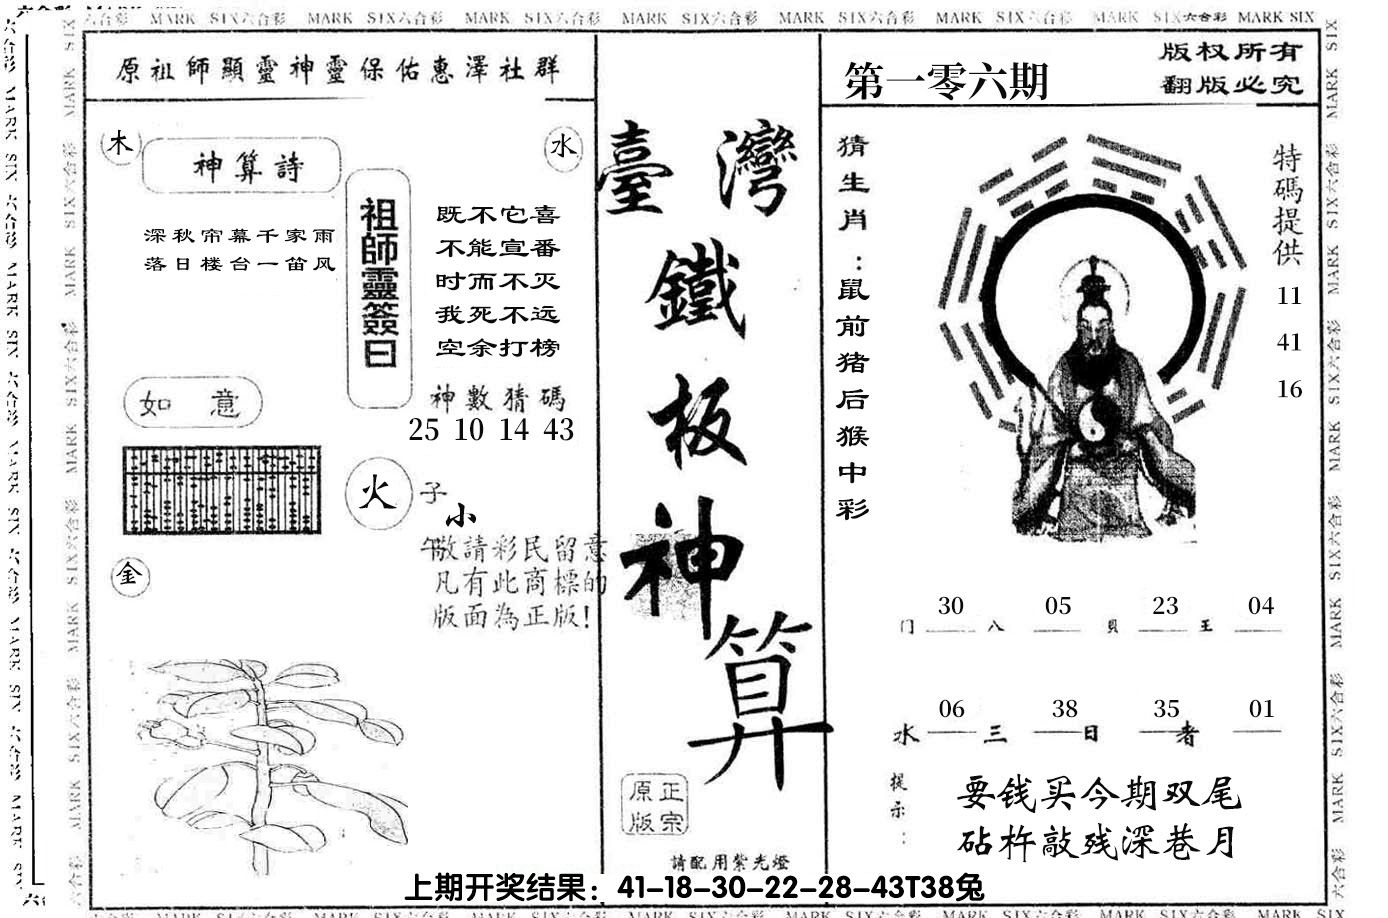 MARK SIX六合彩 MARK SIX六合彩 MARK SIX六合彩 MARK SIX六合彩 MARK SIX六合彩 MARK SIX六合彩 MARK SIX六合彩 MARK SIX
原祖師顯靈神靈保佑惠澤社群
木
神算詩
水
深秋帘幕千家雨
落日楼台一笛风
祖師靈簽曰
既不它喜
不能宣番
时而不灭
我死不远
空余打榜
如意
神數猜碼
25 10 14 43
火
子
小
午
敬請彩民留意
凡有此商標的
版面為正版!
金
臺灣
鐵
板
神
算
原正
版宗
請配用紫光燈
第一零六期
版权所有
翻版必究
猜生肖:鼠前猪后猴中彩
特碼提供
11
41
16
30 05 23 04
门 八 貝 王
06 38 35 01
水 三 日 者
提示:
要钱买今期双尾
砧杵敲残深巷月
上期开奖结果：41-18-30-22-28-43T38兔